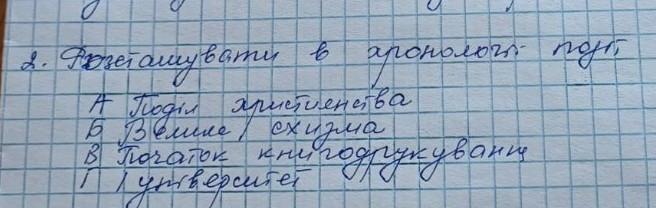 2. Розташувати в хронології події
А Поділ християнства
Б Велика схизма
В Початок книгодрукування
Г І університет